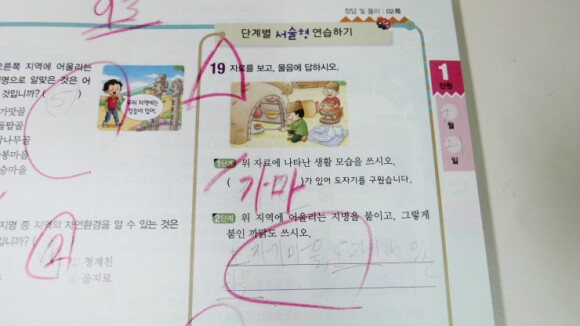 93
정답 및 풀이 : 02쪽
오른쪽 지역에 어울리는
명으로 알맞은 것은 어
것입니까? ( 5 )
가맛골
돌탑골
나무골
봉마을
승마을
우리 지역에는
장승이 있어.
지명 중 지역의 자연환경을 알 수 있는 것은
입니까? (
정게진
을지로
단계별 서술형 연습하기
19 자료를 보고, 물음에 답하시오.
1단계 위 자료에 나타난 생활 모습을 쓰시오.
( 가마 )가 있어 도자기를 구웠습니다.
2단계 위 지역에 어울리는 지명을 붙이고, 그렇게
붙인 까닭도 쓰시오.
도자기마을, 도자기가
1
단원
월
일